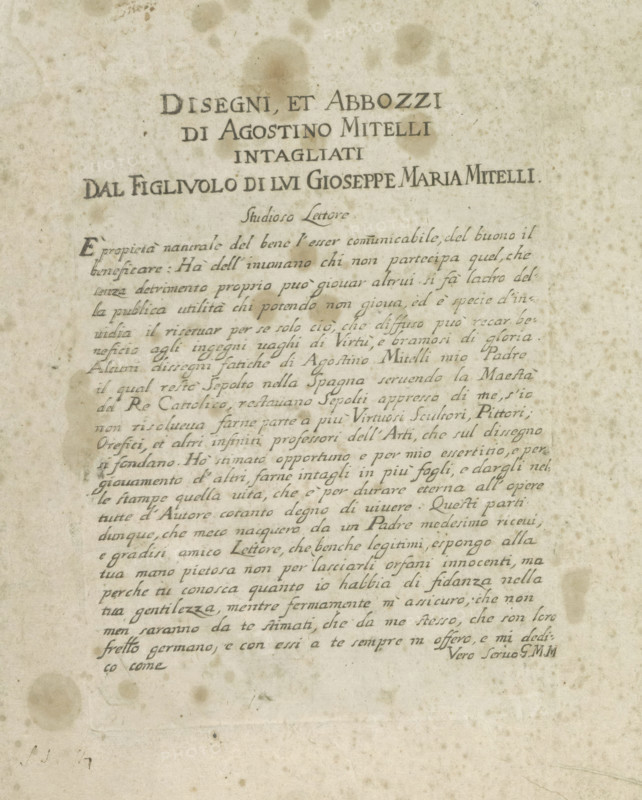 DISEGNI, ET ABBOZZI
DI AGOSTINO MITELLI
INTAGLIATI
DAL FIGLIVOLO DI LVI GIOSEPPE MARIA MITELLI.
Studioso Lettore
E' propietà naturale del bene l'esser comunicabile, del buono il
beneficare: Hà dell'inumano chi non partecipa quel, che
senza detrimento proprio può giouar altrui si fà ladro del-
la publica utilità chi potendo non gioua, ed è specie d'in-
uidia il riseruar per se solo ciò, che diffuso può recar be-
neficio agli ingegni uaghi di Virtù, e bramosi di gloria.
Alcuni dissegni fatiche di Agostino Mitelli mio Padre
il qual restò Sepolto nella Spagna seruendo la Maestà
del Re Cattolico, restauano Sepolti appresso di me, s'io
non risolueua farne parte a più Virtuosi Scultori, Pittori,
Orefici, et altri infiniti professori dell'Arti, che sul dissegno
si fondano. Hò stimato opportuno e per mio esertitio, e per
giouamento d'altri, farne intagli in più fogli, e dargli nel
le stampe quella uita, che è per durare eterna all'opere
tutte d'Autore cotanto degno di uiuere. Questi parti
dunque, che meco nacquero da un Padre medesimo riceui,
e gradisi amico Lettore, che benche legitimi, espongo alla
tua mano pietosa non per lasciarli orfani innocenti, ma
perche tu conosca quanto io habbia di fidanza nella
tua gentilezza, mentre fermamente m'assicuro, che non
men saranno da te stimati, che da me stesso, che son loro
frello germano; e con essi a te sempre m'offero, e mi dedi-
co come Vero Seruo G.M.M